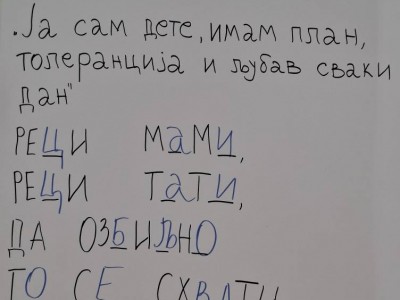 „Ја сам дете, имам план,
толеранција и љубав сваки
дан"
РЕЦИ МаМИ,
РЕЦИ ТаТИ,
ДА ОЗБИЉНО
ТО СЕ СХВАТИ